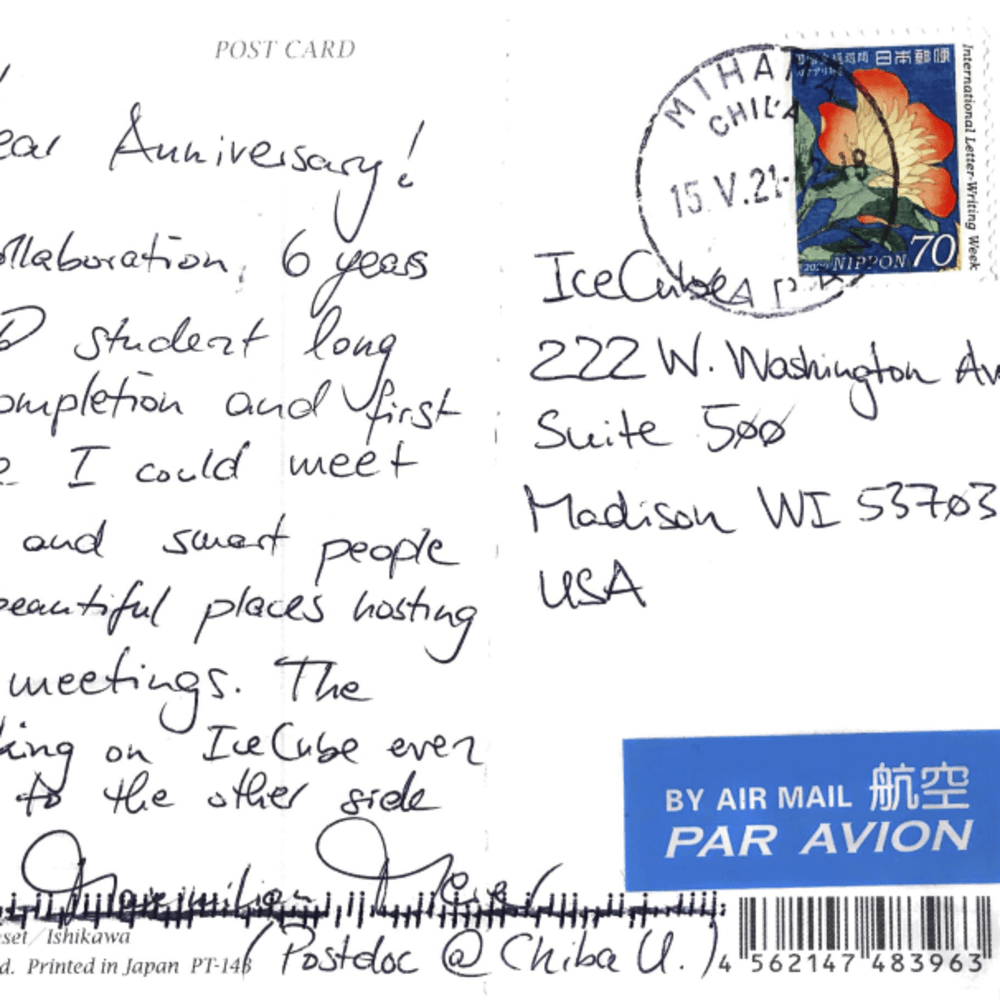 POST CARD
ear Anniversary!
ollaboration, 6 years
D student long
ompletion and first
e I could meet
and smart people
beautiful places hosting
meetings. The
king on IceCube even
to the other side
(Postdoc @ Chiba U.)
set / Ishikawa
d. Printed in Japan PT-148
MIHAMA
CHIBA
15.V.21
JAPAN
日本郵便
International Letter-Writing Week
2020 NIPPON 70
IceCube
222 W. Washington Av
Suite 500
Madison WI 53703
USA
BY AIR MAIL 航空
PAR AVION
4 562147 483963